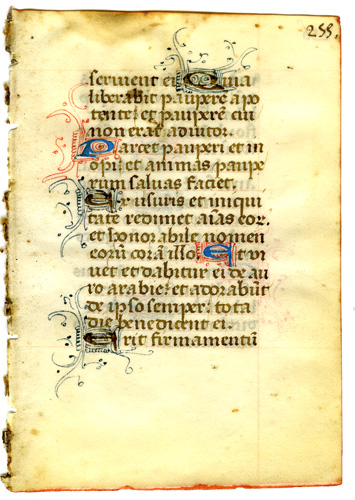 255.
seruient ei. Quia
liberabit pauperē a po
tente: et pauperē cui
non erat adiutor.
Parcet pauperi et in
opi: et animas paupe
rum saluas faciet.
Ex usuris et iniqui
tate redimet aīas eor.
et honorabile nomen
eorū corā illo. Et ui
uet et dabitur ei de au
ro arabie: et adorabūt
de ipso semper: tota
die benedicent ei.
Erit firmamentū